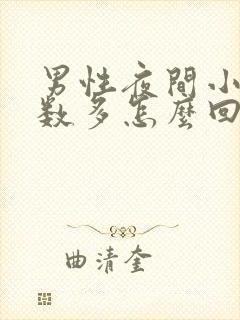 男性夜間小
数多怎麼回
曲清奎